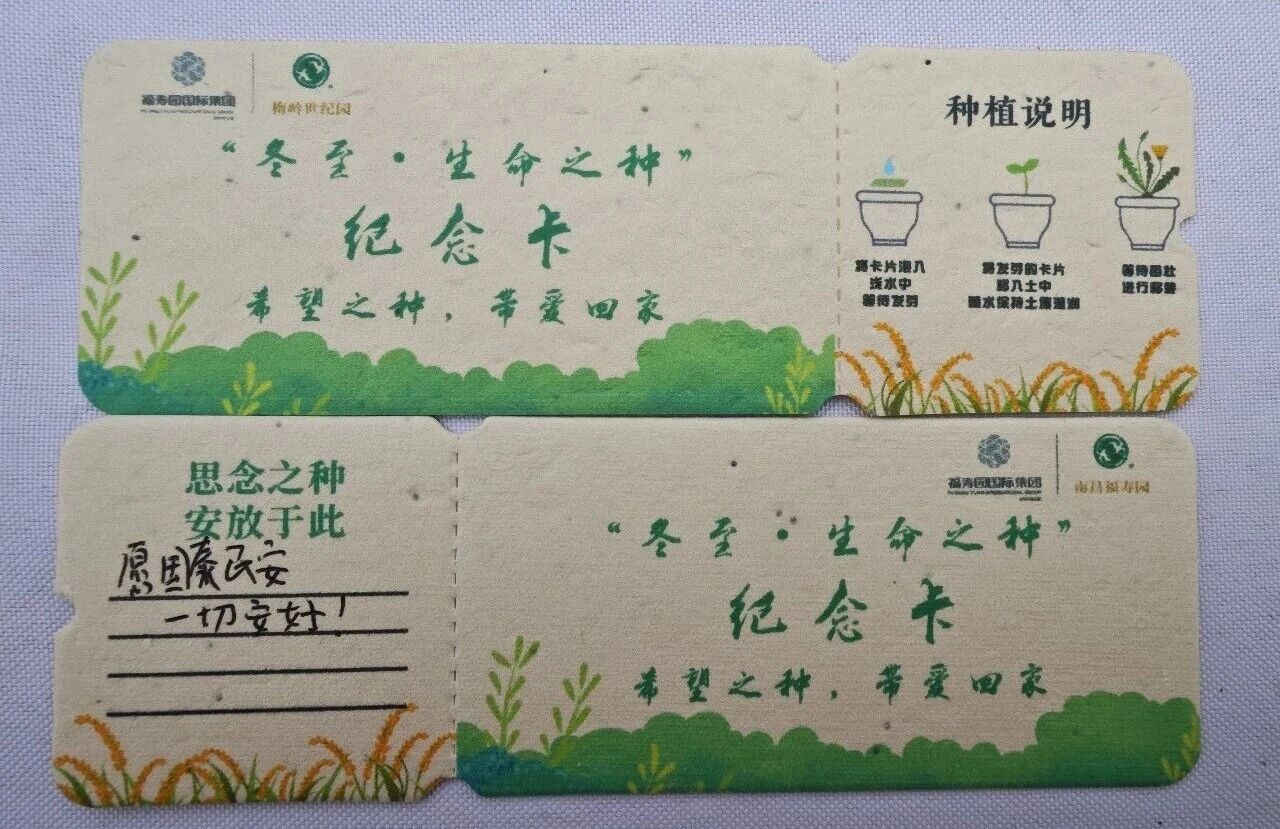 福寿园国际集团
梅岭世纪园
“冬至·生命之种”
纪念卡
希望之种，带爱回家
种植说明
将卡片浸入
浅水中
等待发芽
将发芽的卡片
移入土中
喷水保持土壤湿润
等待茁壮
进行移栽
思念之种
安放于此
愿国泰民安
一切安好！
福寿园国际集团
FU SHOU YUAN INTERNATIONAL GROUP
南昌福寿园
“冬至·生命之种”
纪念卡
希望之种，带爱回家